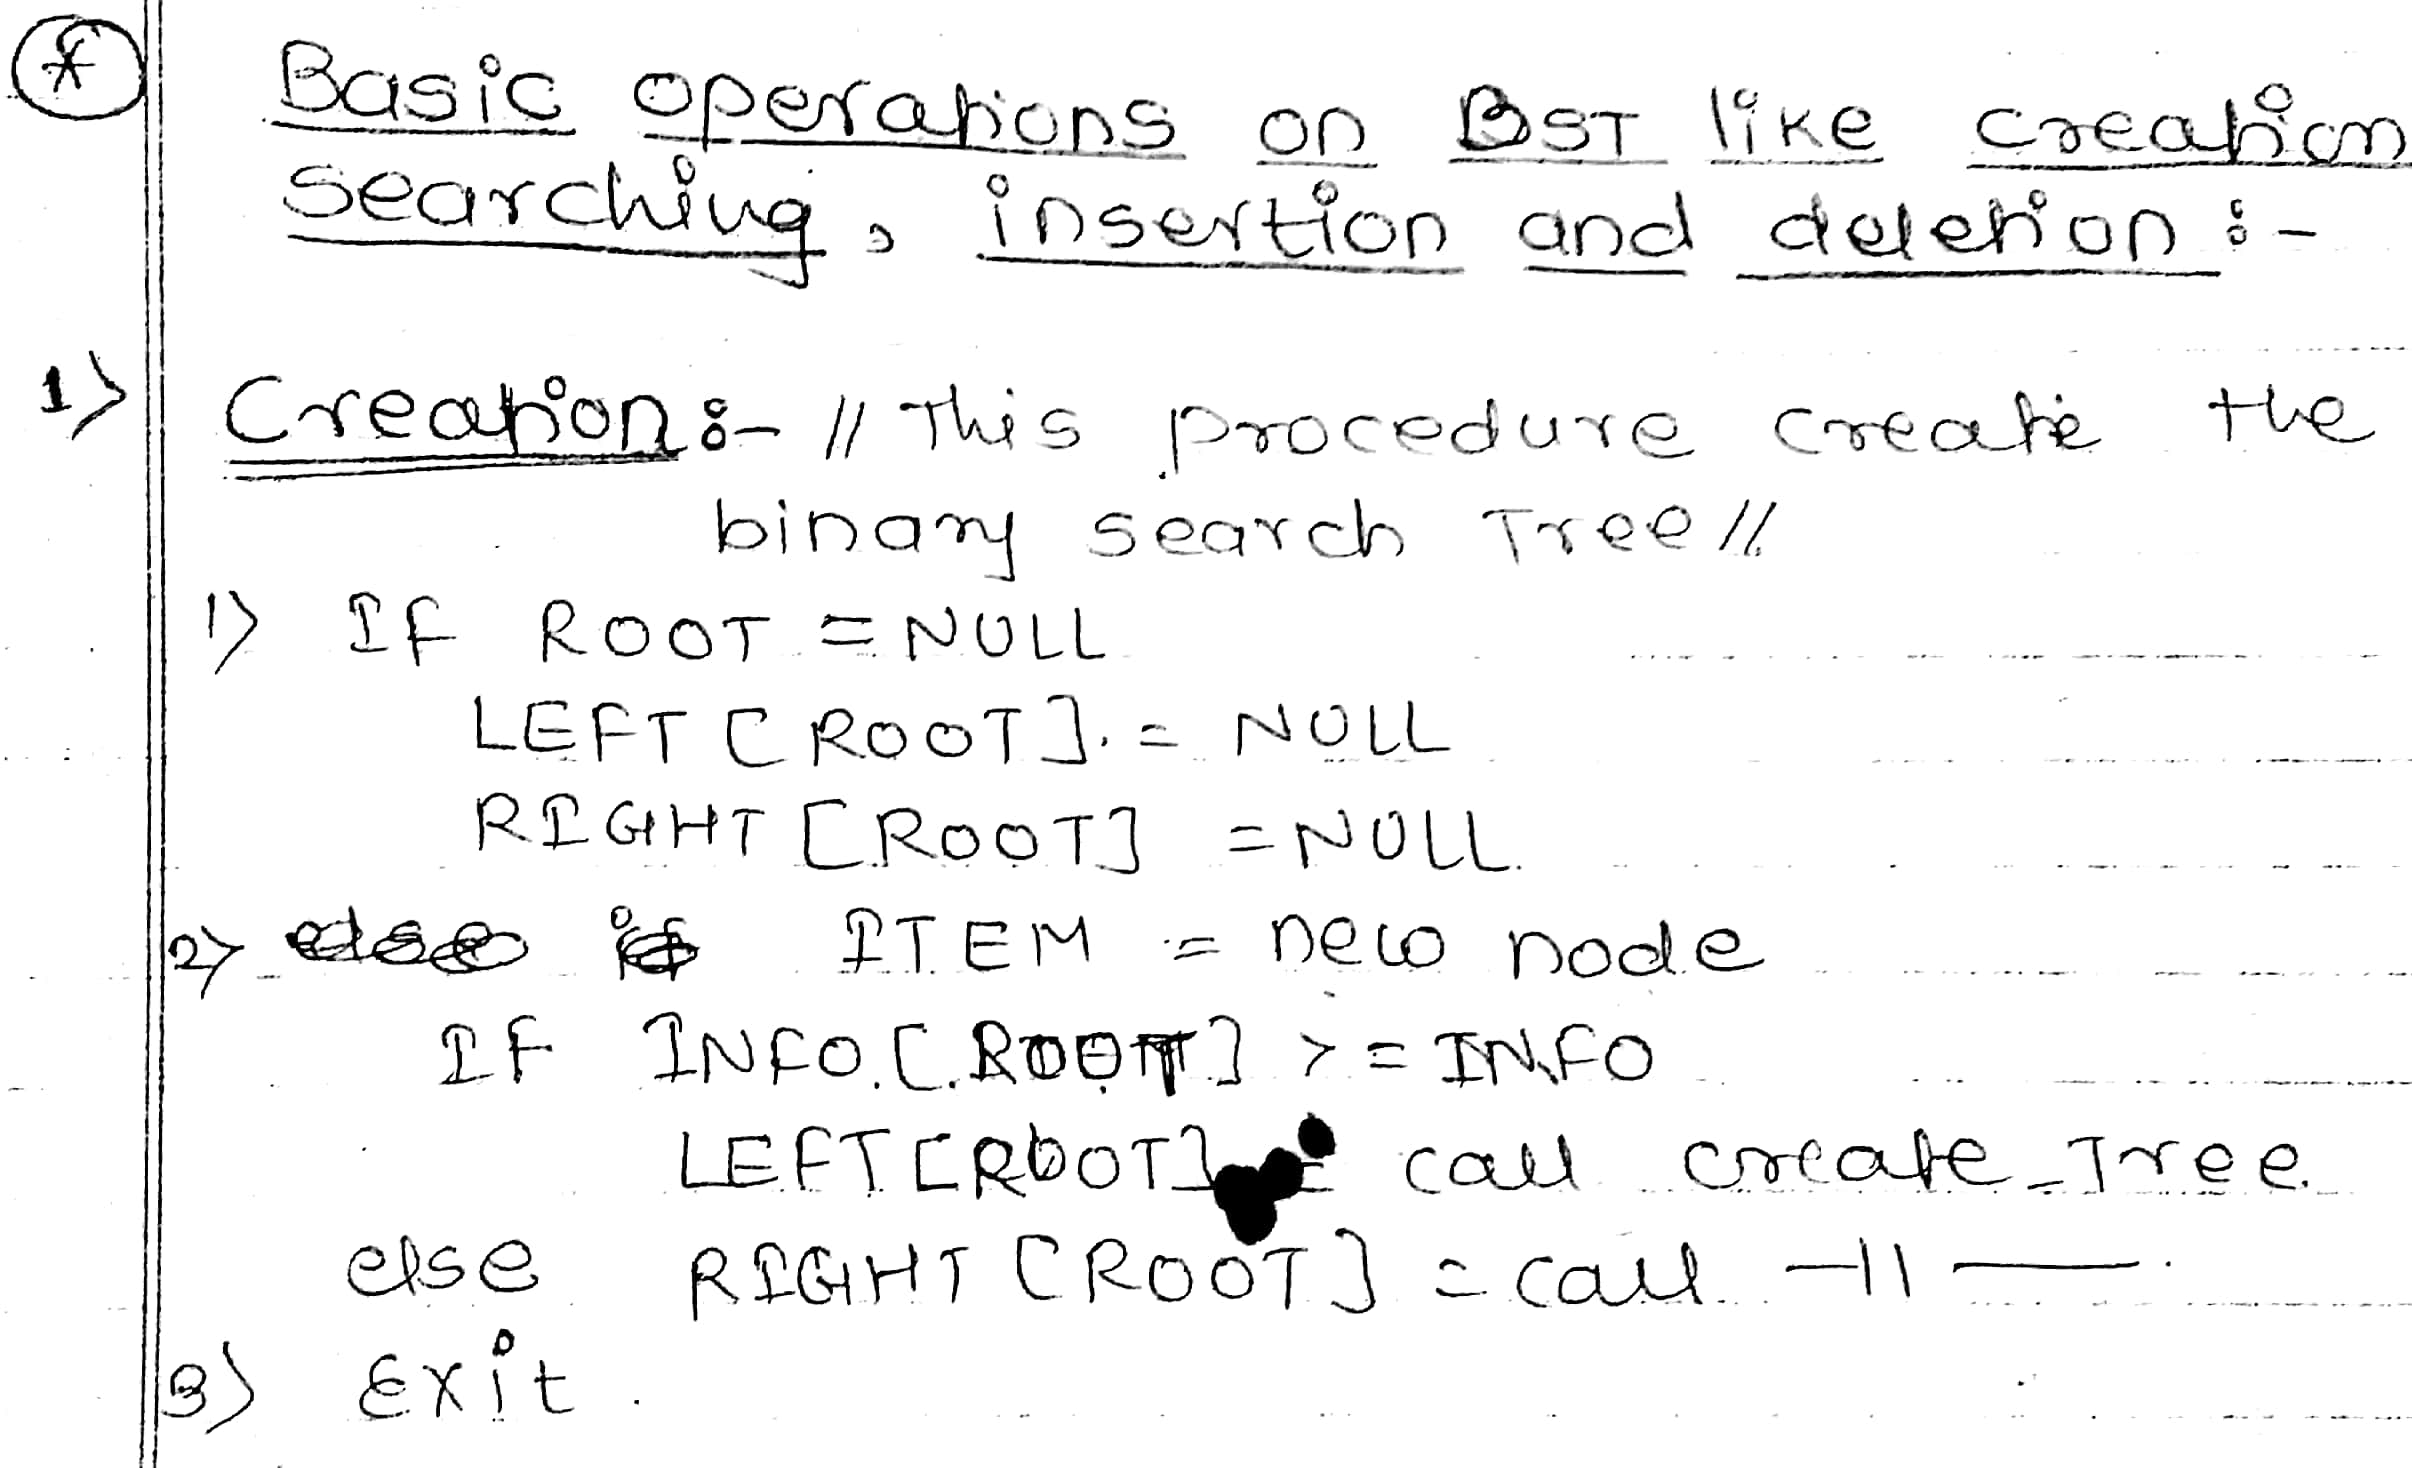 * Basic operations on BST like creation
searching, insertion and deletion :-
1) Creation :- // This procedure create the
binary search Tree //
1) If ROOT = NULL
LEFT [ROOT] = NULL
RIGHT [ROOT] = NULL.
2) else if ITEM = new node
If INFO [ROOT] >= INFO
LEFT [ROOT] = call create_Tree
else RIGHT [ROOT] = call —11—
3) Exit.